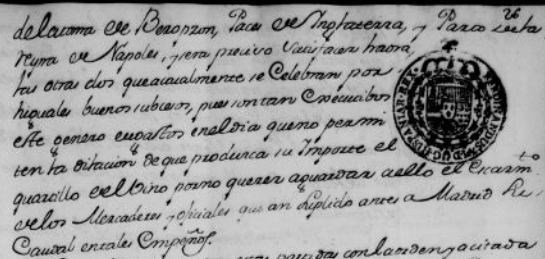 de la toma de Beropzon, Paces de Inglaterra, y Parto de la
reyna de Napoles, y sera preciso Satisfacer haora
las otras dos que actualmente se Celebran por
higuales buenos subcesos, pues son tan Crecidos
este genero en gastos en el dia que no permi
ten la dilacion de que produzca su Importe el
quartillo del Vino por no querer aguardar a ello el
de los Mercaderes y oficiales que an Suplido antes a Madrid
Caudal en tales
con la orden y citada